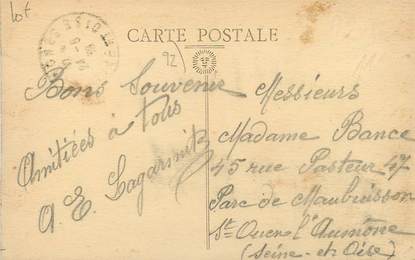 lot
CARTE POSTALE
92
Bons Souvenir
Amitiées à tous
A. E.
Messieurs
Madame Bance
45 rue Pasteur 47
Parc de Maubuisson
St Ouen l'Aumône
(Seine-et-Oise)